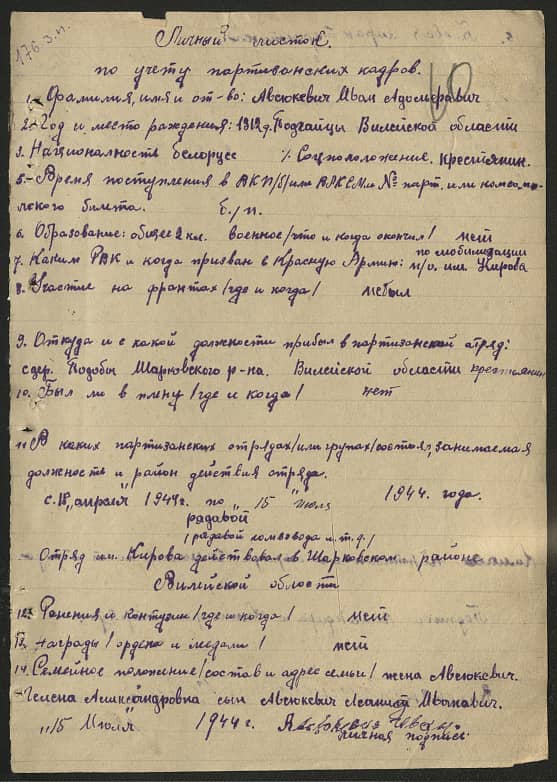 176 з.п.
Личный листок.
по учету партизанских кадров.
10
1. Фамилия, имя и от-во: Авсюкевич Иван Адольфавич
2. Год и место раждения: 1912 д. Подгайцы Вилейской области
3. Национальность белорусс 4. Соцположение. крестянин.
5. Время поступления в ВКП/б/или ВЛКСМ и № парт. или комсомо-
льского билета. б./п.
6. Образование: общее 2 кл. военное/что и когда окончил/ нет
по мобилизации
7. Каким РВК и когда призван в Красную Армию: п/о. им. Кирова
8. Участие на фронтах/где и когда/ небыл
9. Откуда и с какой должности прибыл в партизанский отряд:
с дер. Шарковского р-на. Вилейской области крестьянин
10. Был ли в плену/где и когда/ нет
11. В каких партизанских отрядах/или групах/состоял, занимаемая
должность и район действия отряда.
с "18" апреля 1944г. по "15" июля 1944. года.
радавой
/радавой комвзвода и.т.д./
Отряд им. Кирова действовал в Шарковском районе
Вилейской области
12. Ранения и контузии/где и когда/ нет
13. Награды/ордена и медали/ нет
14. Семейное положение/состав и адрес семьи/ жена Авсюкевич.
Гелена Александровна сын Авсюкевич Леанид Иванавич.
"15 Июля" 1944г.
личная подпись